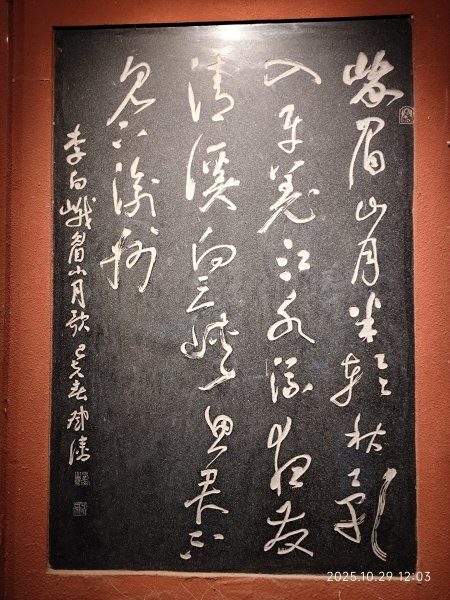 峨眉山月半輪秋影
入平羌江水流夜發
清溪向三峽思君不
見下渝州
李白峨眉山月歌 春
2025.10.29 12:03